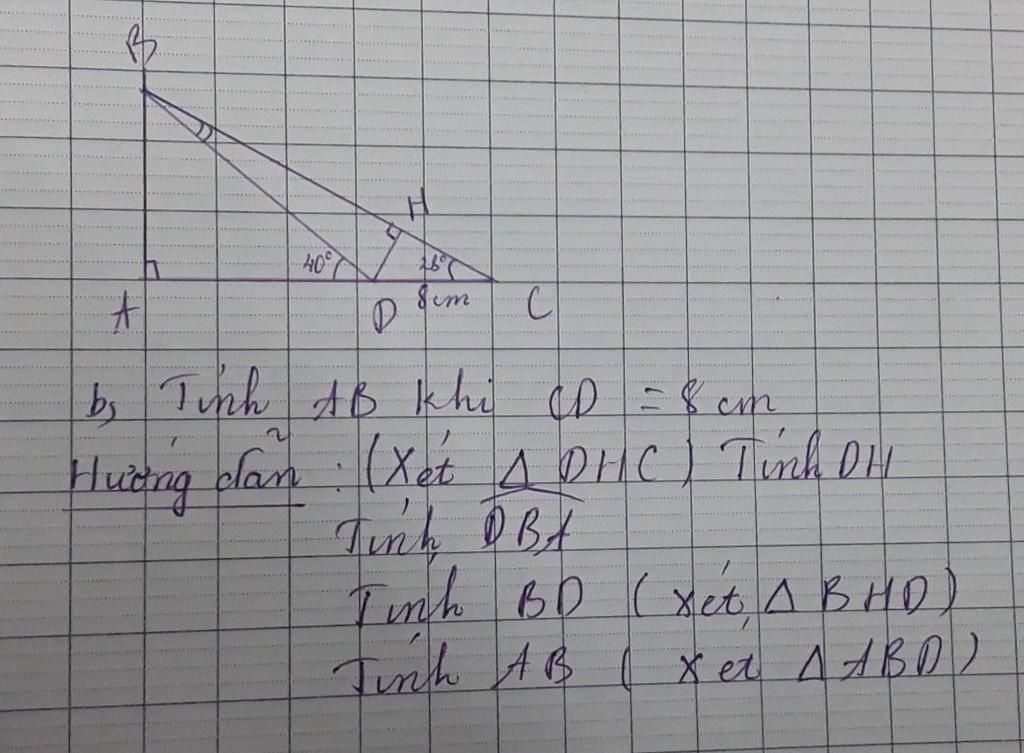 B
H
40° 28°
A D 8cm C
b, Tính AB khi CD = 8 cm
Hướng dẫn : (Xét Δ DHC) Tính DH
Tính DBA
Tính BD (xét Δ BHD)
Tính AB ( xét Δ ABD)